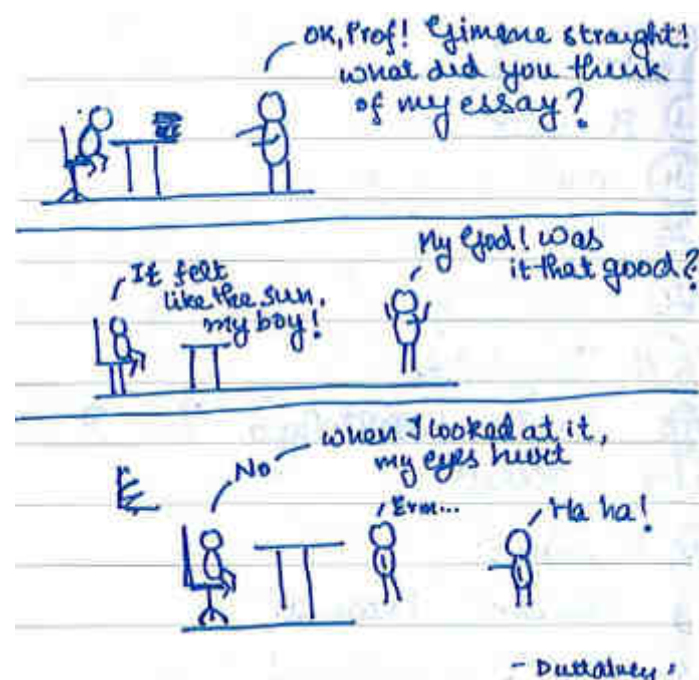 OK, Prof! Gimme straight!
What did you think
of my essay?
It felt
like the sun,
my boy!
My God! Was
it that good?
No
When I looked at it,
my eyes hurt
Erm...
Ha ha!